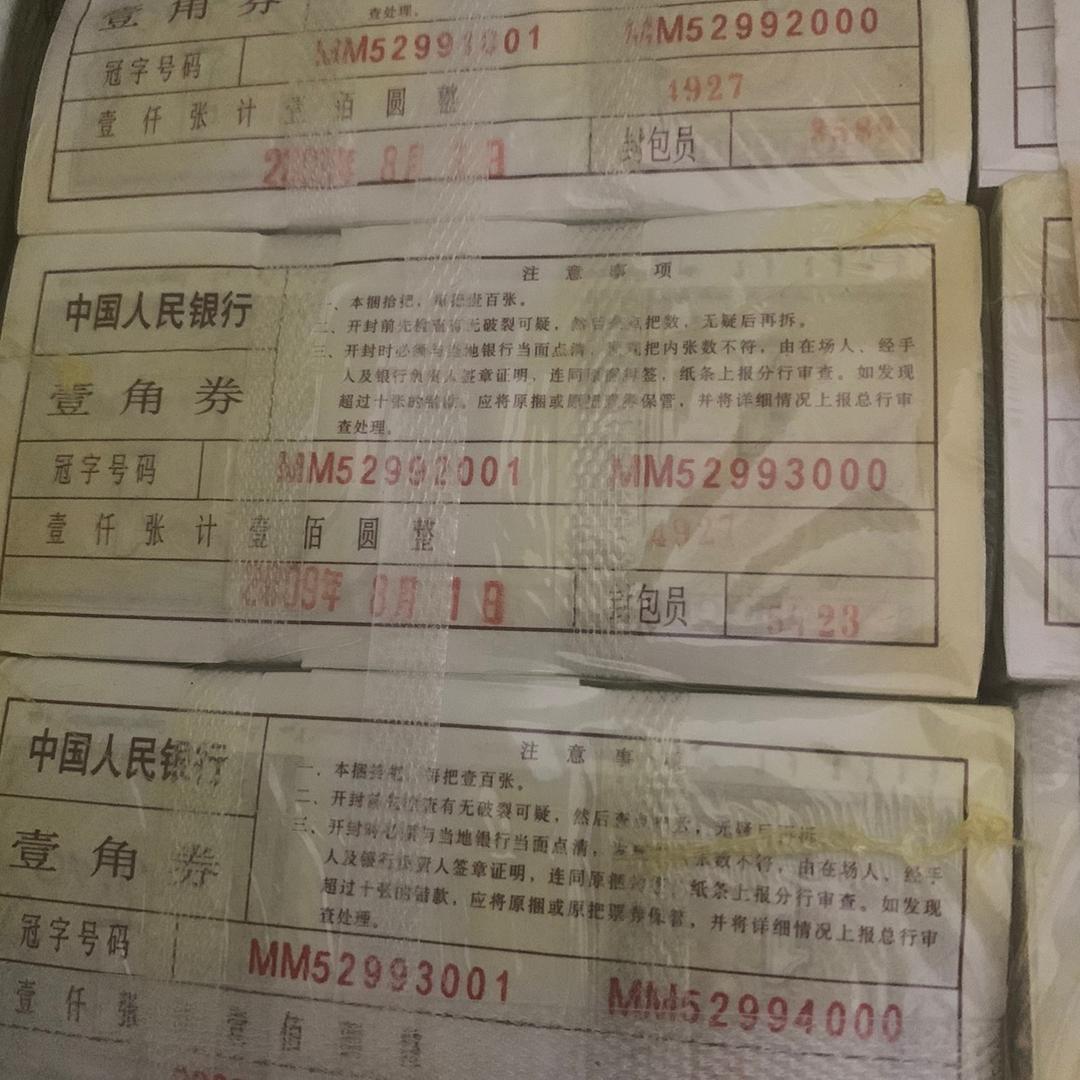 壹角券
查处理。
冠字号码 MM52991001 MM52992000
壹仟张计壹佰圆整 4927
8月 日 封包员
中国人民银行
壹角券
注意事项
一、本捆拾把，每把壹百张。
二、开封前先检查有无破裂可疑，然后查点把数，无疑后再拆。
三、开封时必须与当地银行当面点清，发现把内张数不符，由在场人、经手
人及银行负责人签章证明，连同原捆封签，纸条上报分行审查。如发现
超过十张的错款，应将原捆或原把票券保管，并将详细情况上报总行审
查处理。
冠字号码 MM52992001 MM52993000
壹仟张计壹佰圆整 4927
2009年 8月 1日 封包员 23
中国人民银行
壹角券
注意事
一、本捆拾把，每把壹百张。
二、开封前先检查有无破裂可疑，然后查点把数，无疑后再拆
三、开封时必须与当地银行当面点清，发现把内张数不符，由在场人、经手
人及银行负责人签章证明，连同原捆封签，纸条上报分行审查。如发现
超过十张的错款，应将原捆或原把票券保管，并将详细情况上报总行审
查处理。
冠字号码 MM52993001 MM52994000
壹仟张 壹佰圆整